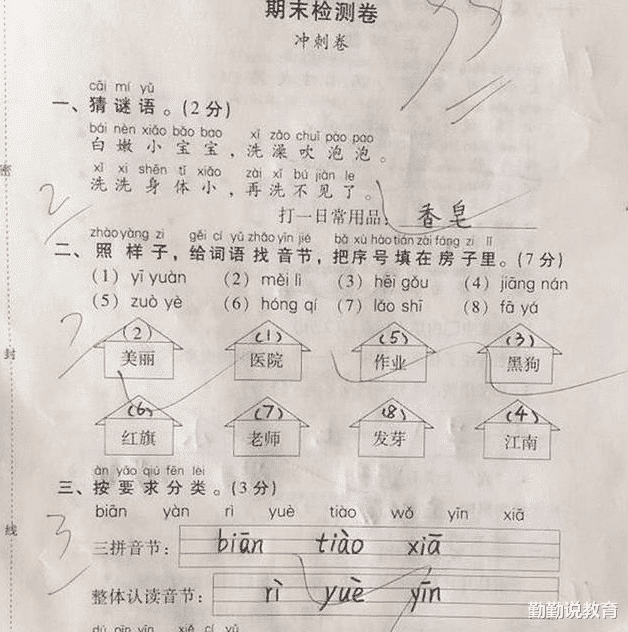 期末检测卷
冲刺卷
cāi mí yǔ
一、猜谜语。(2分)
bái nèn xiǎo bǎo bao xǐ zǎo chuī pào pao
白嫩小宝宝，洗澡吹泡泡。
xǐ xi shēn tǐ xiǎo zài xǐ bú jiàn le
洗洗身体小，再洗不见了。
2
打一日常用品：香皂
zhào yàng zi gěi cí yǔ zhǎo yīn jié bǎ xù hào tián zài fáng zi lǐ
二、照样子，给词语找音节，把序号填在房子里。(7分)
(1) yī yuàn (2) měi lì (3) hēi gǒu (4) jiāng nán
(5) zuò yè (6) hóng qí (7) lǎo shī (8) fā yá
7
(2) (1) (5) (3)
美丽 医院 作业 黑狗
(6) (7) (8) (4)
红旗 老师 发芽 江南
àn yāo qiú fēn lèi
三、按要求分类。(3分)
biān yàn rì yuè tiào wǒ yīn xiā
3
三拼音节： biān tiào xiā
整体认读音节： rì yuè yīn
dú pīn yīn xiě cí yǔ
密
封
线
勤勤说教育